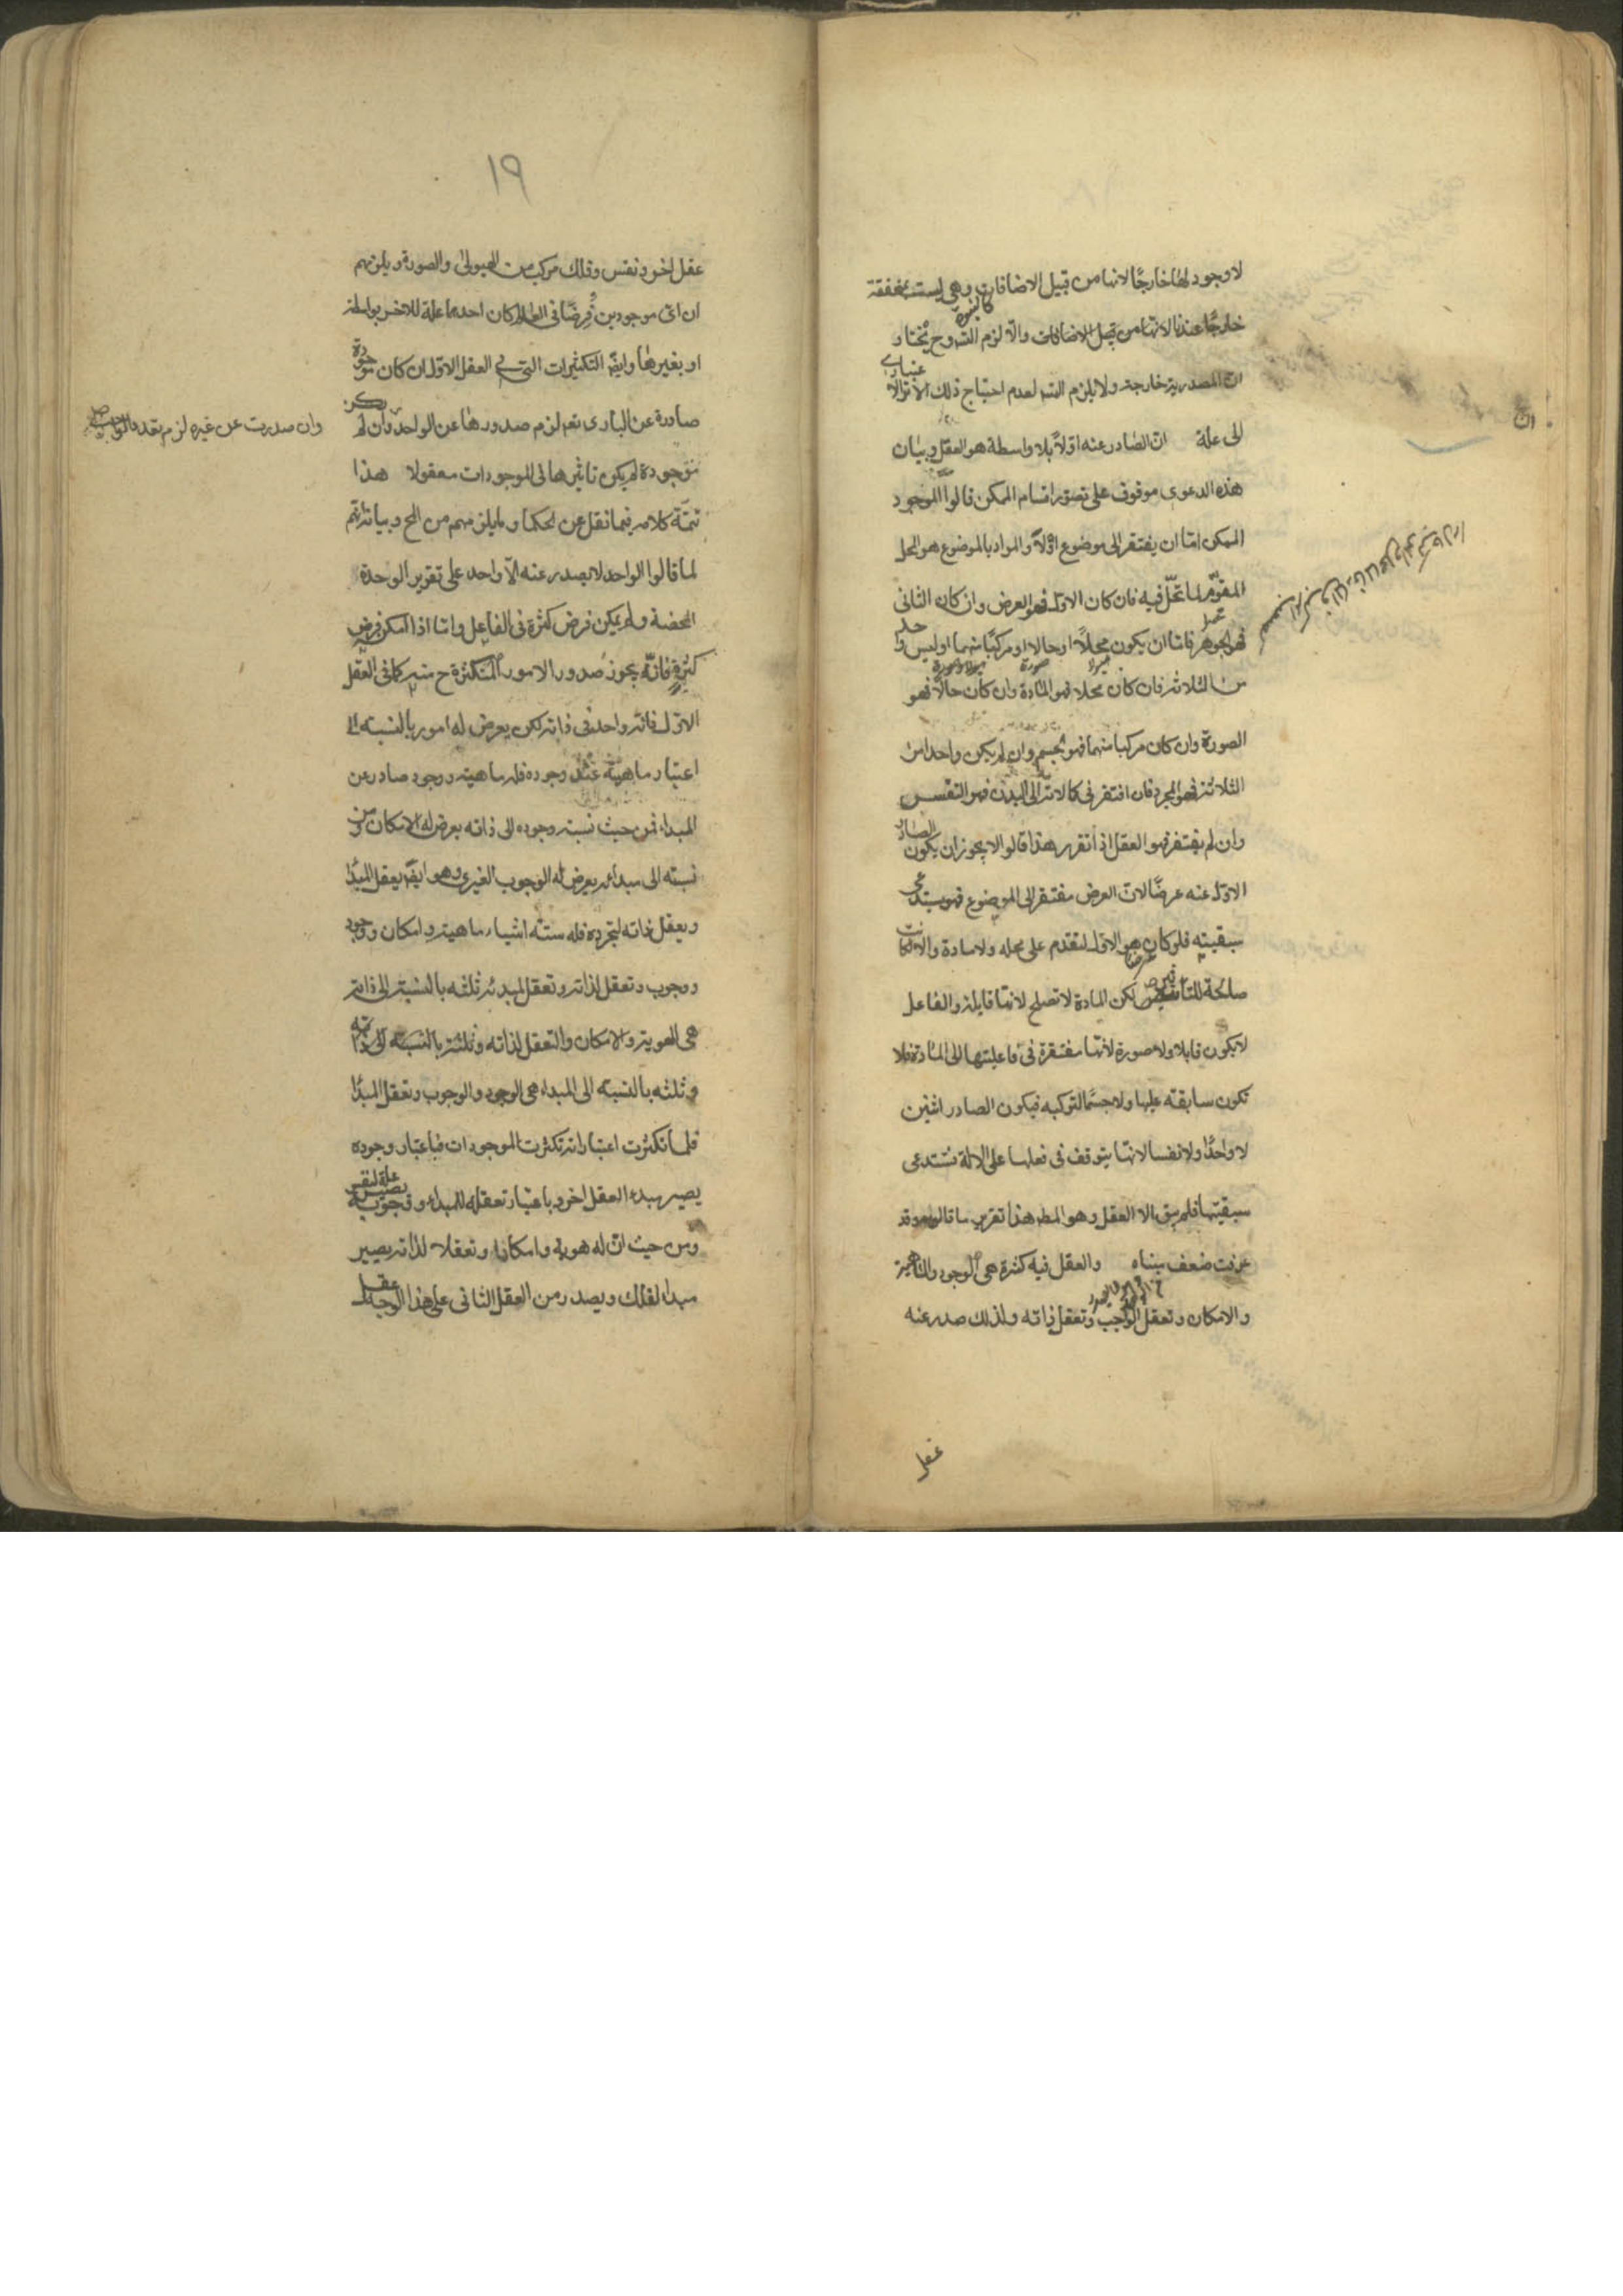 لا وجود لها خارجًا لانها من قبيل الاضافات وهي ليست بمحققة
خارجًا عندنا لانها من قبيل الاضافات والّا لزم التسه وح نختار
انّ المصدرية خارجة ولا يلزم التسه لعدم احتياج ذلك الامر الاعتباري
الى علة انّ الصادر عنه اوّلاً بلا واسطة هو العقل وبيان
هذه الدعوى موقوف على تصور اقسام الممكن قالوا الموجود
الممكن امّا ان يفتقر الى موضوع اوّلاً والمراد بالموضوع هو المحل
المقوّم لما تحلّ فيه فان كان الاول فهو العرض وان كان الثاني
فهو الجوهر فامّا ان يكون محلّاً او حالا او مركبًا منهما او ليس واحد
من الثلاثة فان كان محلا فهو المادة وان كان حالًا فهو
الصورة وان كان مركبا منهما فهو الجسم وان لم يكن واحدا من
الثلاثة فهو المجرد فان افتقر في كمالاته الى البدن فهو النفس
وان لم يفتقر فهو العقل اذا تقرر هذا قالوا لا يجوز ان يكون الصادر
الاول عنه عرضًا لانّ العرض مفتقر الى الموضوع فهو يستدعي
سبقيته فلو كان هو الاول لتقدم على محله ولا مادة والا لكانت
صالحة للتاثير لكن المادة لا تصلح لانها قابلة والفاعل
لا يكون قابلا ولا صورة لانها مفتقرة في فاعليتها الى المادة فلا
تكون سابقته عليها ولا جسمًا لتركبه فيكون الصادر اثنين
لا واحدًا ولا نفسا لانها يتوقف في فعلها على الالة فتستدعي
سبقيتها فلم يبق الا العقل وهو المط هذا تقرير ما قالوه وقد
عرفت ضعف مبناه والعقل فيه كثرة هي الوجود والماهية
والامكان وتعقل الواجب وتعقل ذاته ولذلك صدر عنه
عقل
انّ
١٩
عقل اخر ونفس وفلك مركب من الهيولى والصورة ويلزمهم
ان اي موجودين فرضا في العالم كان احدهما علة للاخر بواسطة
او بغيرها وايضّ التكثرات التي في العقل الاول ان كان موجودة
صادرة عن البارى تعم لزم صدورها عن الواحد وان لم يكن
وان صدرت عن غيره لزم تعدد الواجب
موجودة لم يكن تاثيرها في الموجودات معقولا هذا
تتمّة كلامه فيما نقل عن الحكما وما يلزمهم من المح وبيانه انّهم
لما قالوا الواحد لا يصدر عنه الّا واحد على تقرير الوحدة
المحضة ولم يمكن فرض كثرة في الفاعل وامّا اذا امكن فرض
كثرة فانّه يجوز صدور الامور المتكثرة ح منه كما في العقل
الاول فانّه واحد في ذاته لكن يعرض له امور بالنسبة الى
اعتبار ماهيّة عند وجوده فله ماهية ووجود صادر عن
المبداء فمن حيث نسبة وجوده الى ذاته يعرض له الامكان ومن
نسبته الى مبدائه يعرض له الوجوب الغيري وهو ايضّ يعقل المبدا
ويعقل ذاته لتجرده فله ستة اشياء ماهية وامكان ووجود
ووجوب وتعقل لذاته وتعقل لمبدئه ثلثه بالنسبة الى ذاته
هي الهوية والامكان والتعقل لذاته وثلثة بالنسبة الى ذاته
وثلثه بالنسبة الى المبداء هي الوجود والوجوب وتعقل المبدا
فلما تكثرت اعتباراته تكثرت الموجودات فباعتبار وجوده
يصير مبداء العقل اخر وباعتبار تعقله للمبداء ووجوبه يصير علة لنفس
ومن حيث انّ له هوية وامكانا وتعقلا لذاته يصير
مبدا لفلك ويصدر من العقل الثاني على هذا الوجه عقل